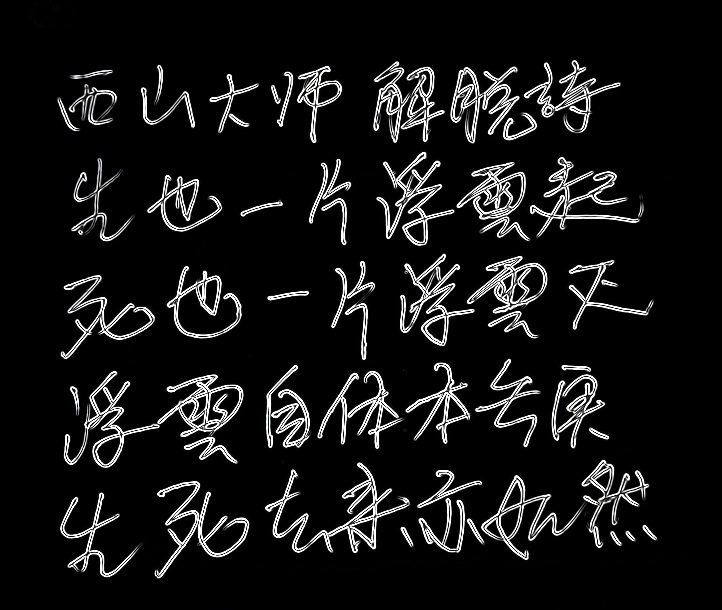 西山大师 解脱詩
生也一片浮雲起
死也一片浮雲灭
浮雲自体本无
生死去来亦如然